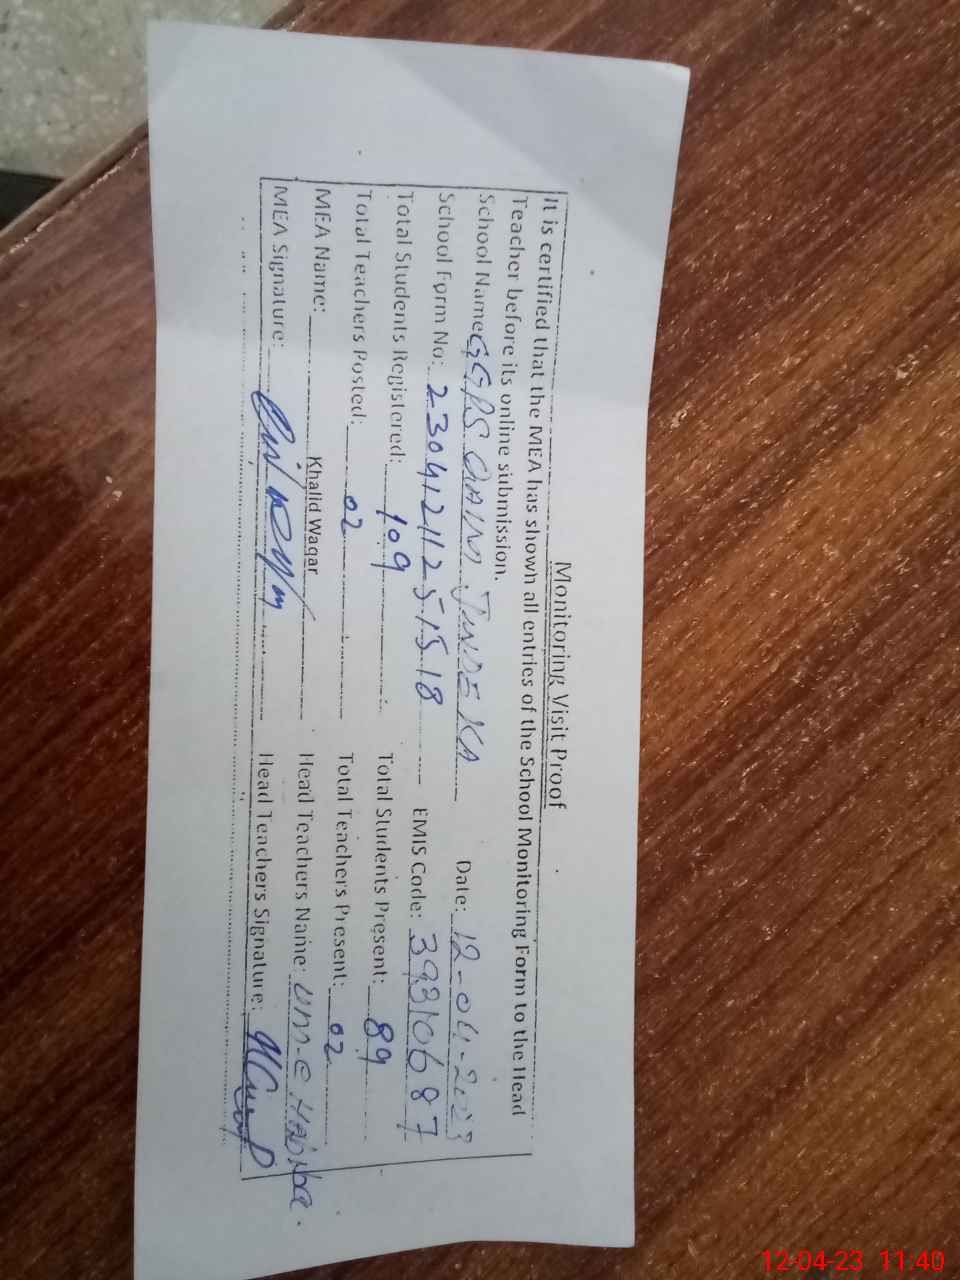 Monitoring Visit Proof
It is certified that the MEA has shown all entries of the School Monitoring Form to the Head
Teacher before its online submission.
School Name GGPS QAIM JUNDEKA Date: 12-04-2023
School Form No: 23041211251518 EMIS Code: 39310687
Total Students Registered: 109 Total Students Present: 89
Total Teachers Posted: 02 Total Teachers Present: 02
MEA Name: Khalid Waqar Head Teachers Name: UM-e HABIba.
MEA Signature: Head Teachers Signature:
12-04-23 11:40